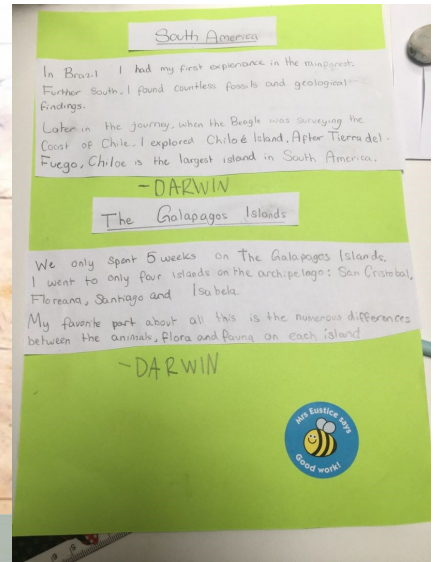 South America
In Brazil I had my first experiance in the rainforest.
Further South, I found countless fossils and geological
findings.
Later in the journey, when the Beagle was surveying the
Coast of Chile, I explored Chiloé Island. After Tierra del-
Fuego, Chiloe is the largest island in South America.
-DARWIN
The Galapagos Islands
We only spent 5 weeks on The Galapagos Islands.
I went to only four islands on the archipelago: San Cristobal,
Floreana, Santiago and Isabela.
My favorite part about all this is the numerous differences
between the animals, flora and fauna on each island
-DARWIN
Mrs Eustice says
Good work!